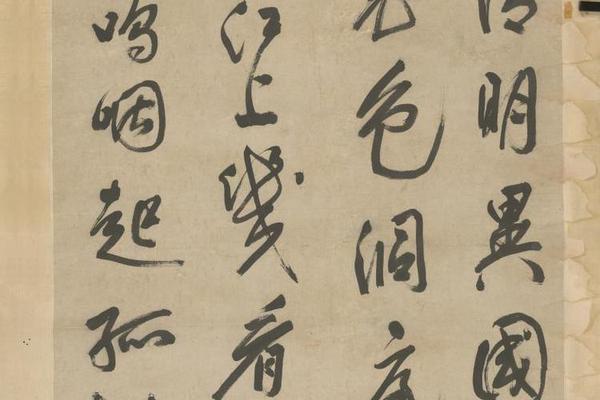 明異國
色洞
江上幾看
嗚咽起孤